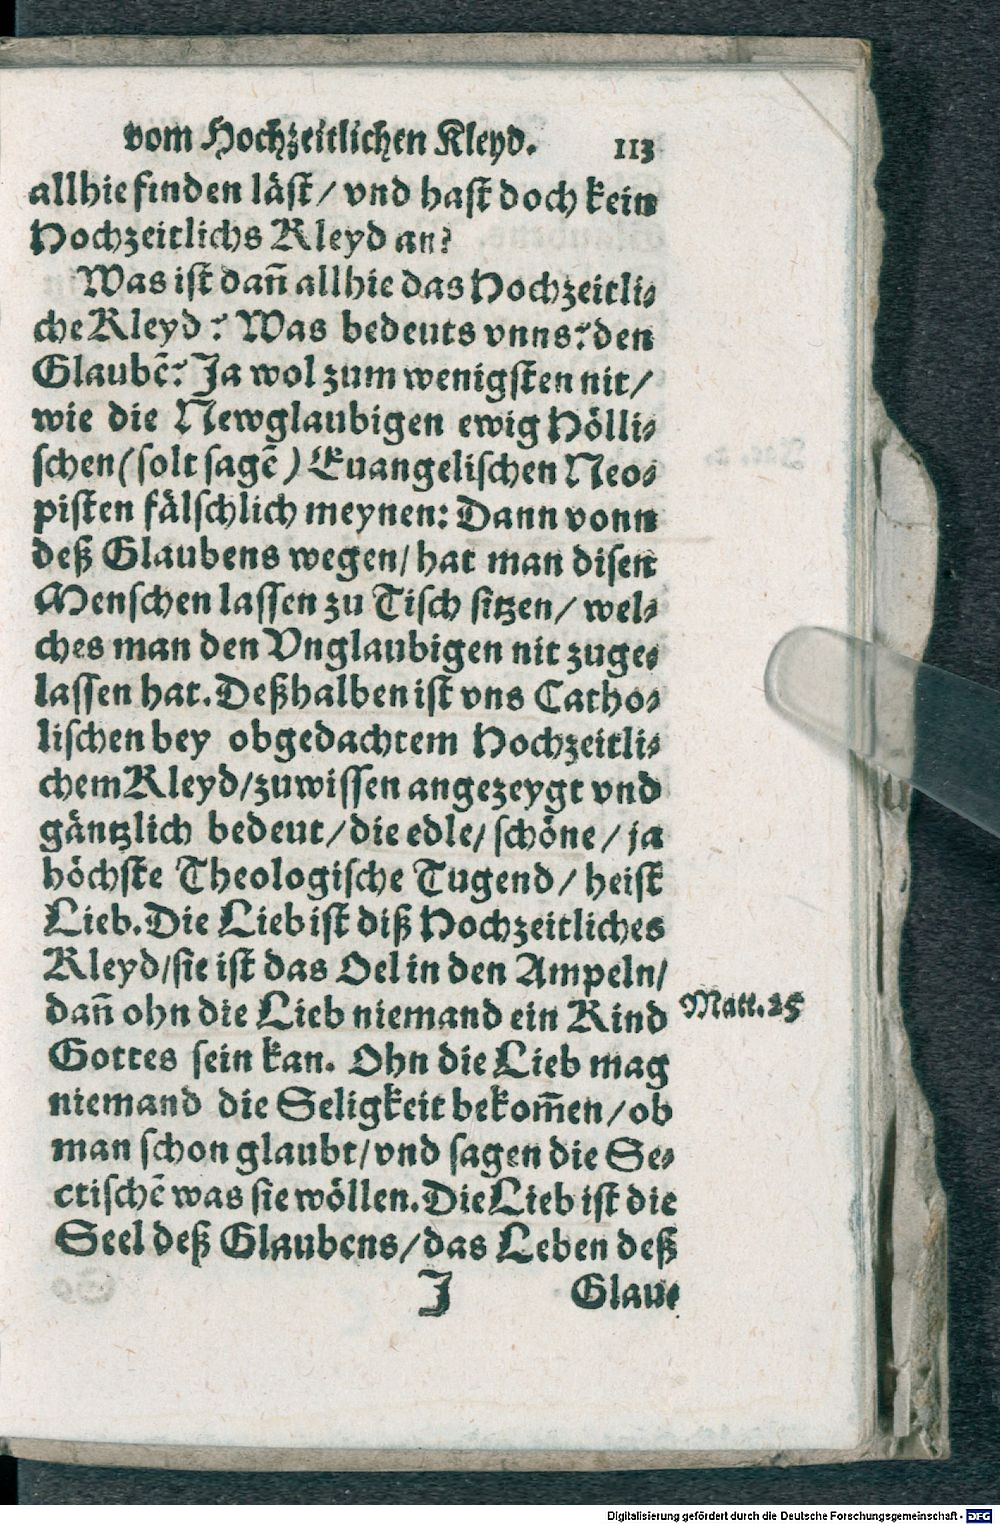 vom Hochzeitlichen Kleyd. 113
allhie finden läst/ vnd hast doch kein
Hochzeitlichs Kleyd an?
Was ist dañ allhie das Hochzeitli-
che Kleyd? Was bedeuts vnns? den
Glaubẽ? Ja wol zum wenigsten nit/
wie die Newglaubigen ewig Hölli-
schen (solt sagẽ) Euangelischen Neo-
pisten fälschlich meynen: Dann vonn
deß Glaubens wegen/ hat man disen
Menschen lassen zu Tisch sitzen/ wel-
ches man den Vnglaubigen nit zuge-
lassen hat. Deßhalben ist vns Catho-
lischen bey obgedachtem Hochzeitli-
chem Kleyd/ zuwissen angezeygt vnd
gäntzlich bedeut/ die edle/ schöne/ ja
höchste Theologische Tugend/ heist
Lieb. Die Lieb ist diß Hochzeitliches
Kleyd/ sie ist das Oel in den Ampeln/
dañ ohn die Lieb niemand ein Kind
Matt. 25
Gottes sein kan. Ohn die Lieb mag
niemand die Seligkeit bekom̃en/ ob
man schon glaubt/ vnd sagen die Se-
ctischẽ was sie wöllen. Die Lieb ist die
Seel deß Glaubens/ das Leben deß
J Glau-
Digitalisierung gefördert durch die Deutsche Forschungsgemeinschaft - DFG